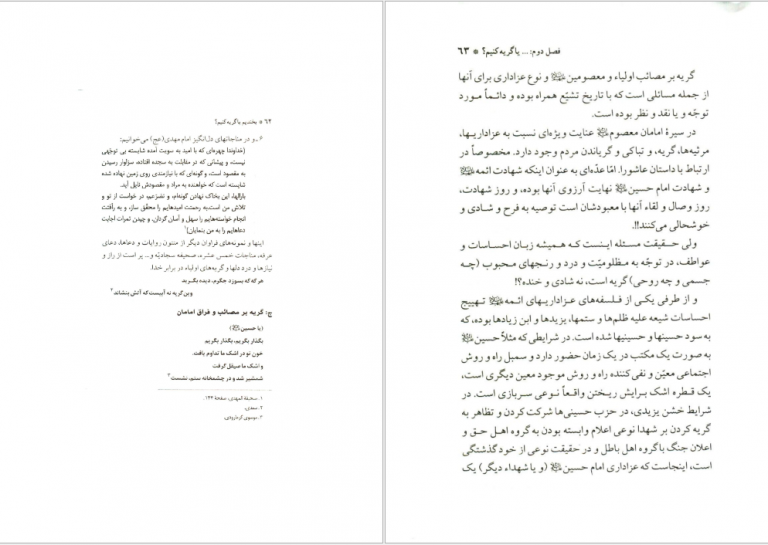 فصل دوم: ... یا گریه کنیم؟ * ۶۳
گریه بر مصائب اولیاء و معصومین و نوع عزاداری برای آنها
از جمله مسائلی است که با تاریخ تشیّع همراه بوده و دائماً مورد
توجه و یا نقد و نظر بوده است.
در سیرهٔ امامان معصوم عنایت ویژه‌ای نسبت به عزاداریها،
مرثیه‌ها، گریه، و تباکی و گریاندن مردم وجود دارد. مخصوصاً در
ارتباط با داستان عاشورا. امّا عدّه‌ای به عنوان اینکه شهادت ائمه
و شهادت امام حسین نهایت آرزوی آنها بوده، و روز شهادت،
روز وصال و لقاء آنها با معبودشان است توصیه به فرح و شادی و
خوشحالی می‌کنند!!.
ولی حقیقت مسئله اینست کـه همیشه زبان احساسات و
عواطف، در توجّه به مظلومیّت و درد و رنجهای محبوب (چـه
جسمی و چه روحی) گریه است، نه شادی و خنده؟!
و از طرفی یکـی از فلسفه‌های عزاداریهای ائمه تهییج
احساسات شیعه علیه ظلم‌ها و ستمها، یزیدها و ابن زیادها بوده، که
به سود حسینها و حسینیها شده است. در شرایطی که مثلاً حسین
به صورت یک مکتب در یک زمان حضور دارد و سمبل راه و روش
اجتماعی معیّن و نفی‌کننده راه و روش موجود معین دیگری است،
یک قـطره اشک بـرایش ریـختن واقعاً نوعی سربازی است. در
شرایط خشن یزیدی، در حزب حسینی‌ها شرکت کردن و تظاهر به
گریه کردن بر شهدا نوعی اعلام وابسته بودن به گروه اهـل حق و
اعلان جنگ با گروه اهل باطل و در حقیقت نوعی از خودگذشتگی
است، اینجاست که عزاداری امام حسین (و یا شهداء دیگر) یک
۶۲ * بخندیم یا گریه کنیم؟
و در مناجاتهای دل‌انگیز امام مهدی(عج) می‌خوانیم:
(خداوندا چهره‌ای که با امید به سویت آمده شایسته بی توجّهی
نیست، و پیشانی که در مقابلت به سجده افتاده، سزاوار رسیدن
به مقصود است، و گونه‌ای که با نیازمندی روی زمین نهاده شده
شایسته است که خواهنده به مراد و مقصودش نایل آید.
بارالها، این بخاک نهادن گونه‌ام، و تضرّعم، در خواست از تو و
تلاش من است، به رحمتت امیدهایم را محقّق ساز، و به رأفتت
انجام خواسته‌هایم را سهل و آسان گردان، و چیدن ثمرات اجابت
دعاهایم را به من بنمایان)۱
اینها و نمونه‌های فراوان دیگر از متـون روایات و دعاها، دعای
عرفه، مناجات خمس عشـره، صحیفه سجادیّه و... پر است از راز و
نیازها و درد دلها و گریه‌های اولیاء در برابر خدا.
هر که که بسوزد جگرم، دیده بگـریـد
وین گریه نه آبیست که آتش بنشاند۲
ج: گریه بر مصائب و فراق امامان
(یا حسین)
بگذار بگریم، بگذار بگریم
خون تو در اشک ما تداوم یافت.
و اشک ما صیقل گرفت
شمشیر شد و در چشمخانه ستم، نشست۳
۱. صحیفة المهدی، صفحهٔ ۱۴۳
۲. سعدی.
۳. موسوی گرمارودی.